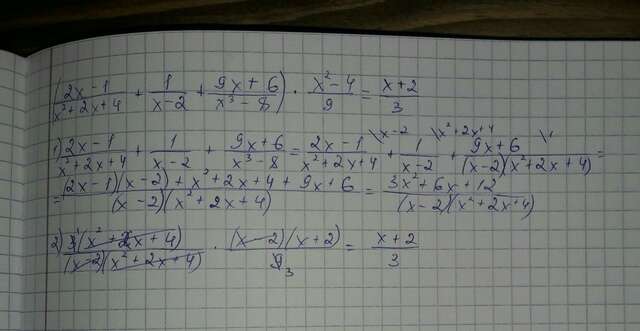 ((2x-1)/(x²+2x+4) + 1/(x-2) + (9x+6)/(x³-8)) · (x²-4)/9 = (x+2)/3
1) (2x-1)/(x²+2x+4) + 1/(x-2) + (9x+6)/(x³-8) = (2x-1)/(x²+2x+4) \x-2 + 1/(x-2) \x²+2x+4 + (9x+6)/((x-2)(x²+2x+4)) \1 =
= ((2x-1)(x-2) + x²+2x+4 + 9x+6)/((x-2)(x²+2x+4)) = (3x²+6x+12)/((x-2)(x²+2x+4))
2) 3(x²+2x+4)/((x-2)(x²+2x+4)) · (x-2)(x+2)/9 3 = (x+2)/3